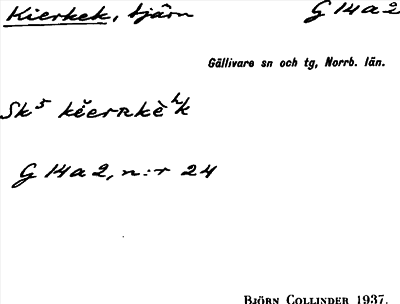 Kierkek, tjärn G 14a2
Gällivare sn och tg, Norrb. län.
Sk⁵ kĕerʀkèʰk
G 14a2, n:r 24
BJÖRN COLLINDER 1937.